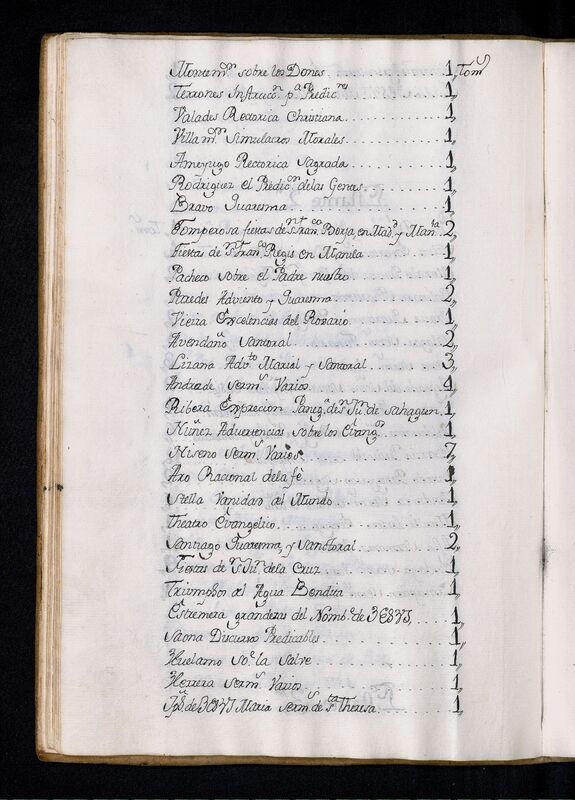 Montem.ʳ sobre los Dones. 1,, Tom.ˢ
Terrones Instrucc.ⁿ p.ᵃ Predic.ʳᵉˢ 1,,
Valades Rectorica Christiana. 1,,
Villam.ʳ Simulacros Morales. 1,,
Ameyugo Rectorica Sagrada 1,,
Rodriguez el Predic.ᵒʳ delas Gentes. 1,,
Bravo Quaresma 1,,
Pomperosa fiestas de S.ⁿ Fran.ᶜᵒ Borja, en Mad.ᵈ y 2,,
Fiestas de S.ⁿ Fran.ᶜᵒ Regis en Manila 1,,
Pacheco sobre el Padre nuestro 1,,
Paredes Adviento y Quaresma 2,,
Vieira Excelencias del Rosario 1,,
Avendaño Santoral 2,,
Lizana Adv.ᵗᵒ Marial y Santoral. 3,,
Andrade Serm.ˢ Varios 4,,
Ribera Exprecion Paneg.ᵃ de S.ⁿ Ju.ⁿ de Sahagun. 1,,
Nuñez Advertencias sobre los Evang.ˢ 1,,
Niseno Serm.ˢ Varios 7,,
Aro Racional dela fè 1,,
Stella Vanidad del Mundo 1,,
Theatro Evangelico 1,,
Santiago Quaresma, y Sanctoral 2,,
Fiestas de S.ⁿ Ju.ⁿ dela Cruz 1,,
Triumphos del Agua Bendita 1,,
Estremera grandezas del Nomb.ᵉ de JESUS, 1,,
Saona Discursos Predicables 1,,
Huelamo so.ᵉ la Salve 1,,
Herrera Serm.ˢ Varios 1,,
de JESUS Maria Serm.ˢ de S.ᵗᵃ Theresa 1,,